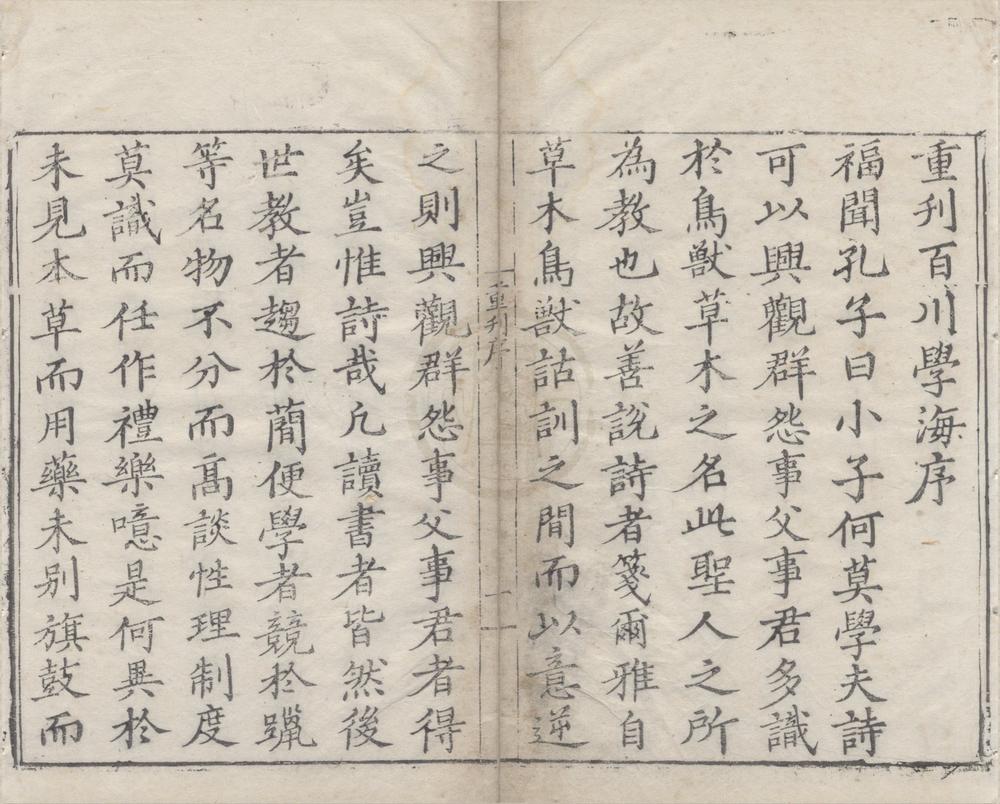 重刊百川學海序
福聞孔子曰小子何莫學夫詩
可以興觀群怨事父事君多識
於鳥獸草木之名此聖人之所
為教也故善說詩者箋爾雅自
草木鳥獸詁訓之間而以意逆
重刊序
一
之則興觀群怨事父事君者得
矣豈惟詩哉凡讀書者皆然後
世教者趨於蕳便學者競於躐
等名物不分而高談性理制度
莫識而任作禮樂噫是何異於
未見本草而用藥未别旗鼓而